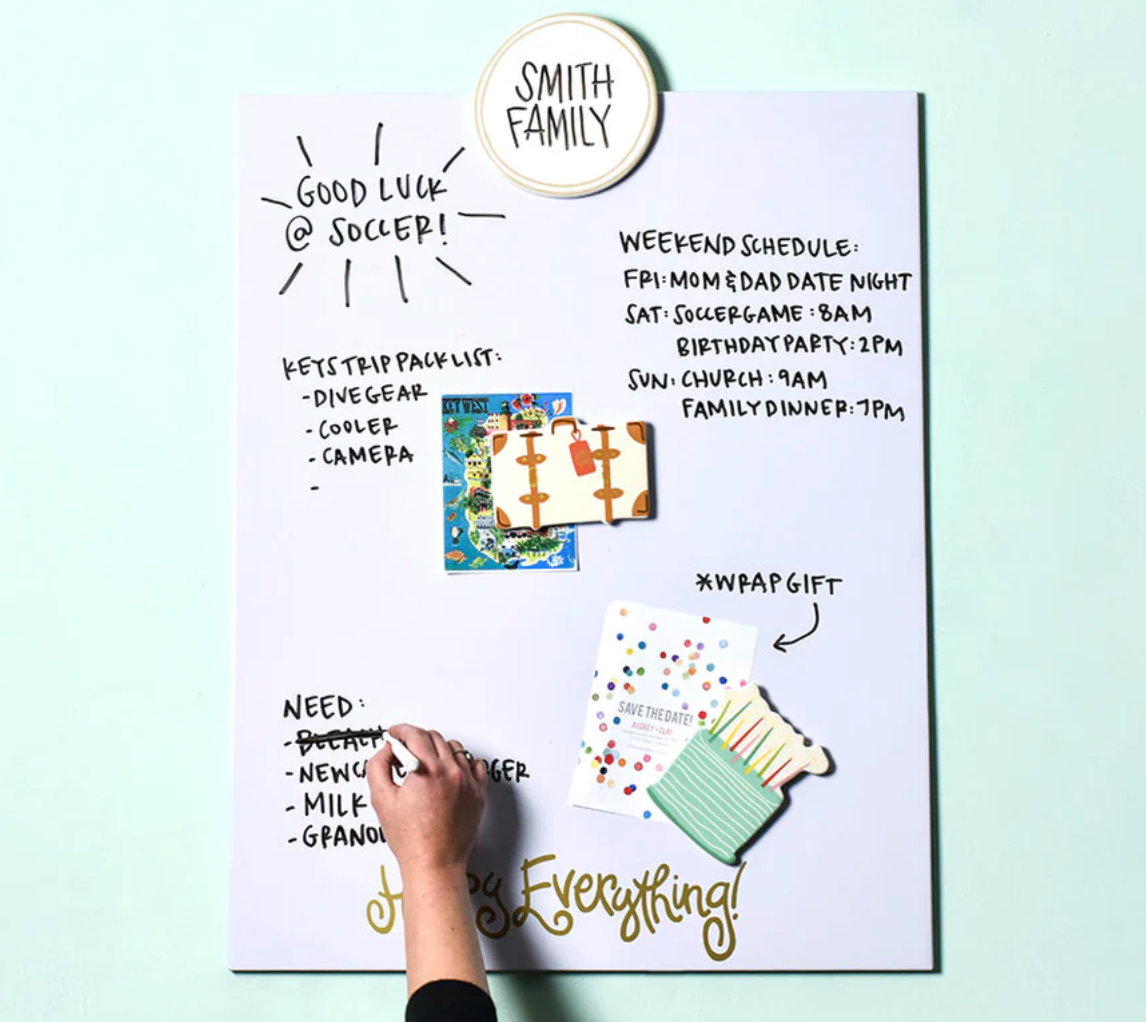 SMITH
FAMILY
GOOD LUCK
@ SOCCER!
WEEKEND SCHEDULE:
FRI: MOM & DAD DATE NIGHT
SAT: SOCCER GAME: 8AM
BIRTHDAY PARTY: 2PM
SUN: CHURCH: 9AM
FAMILY DINNER: 7PM
KEYS TRIP PACK LIST:
- DIVE GEAR
- COOLER
- CAMERA
-
KEY WEST
*WRAP GIFT
SAVE THE DATE!
AUDREY + CLAY
NEED:
- BLEACH
- NEW
- MILK
-
Everything!